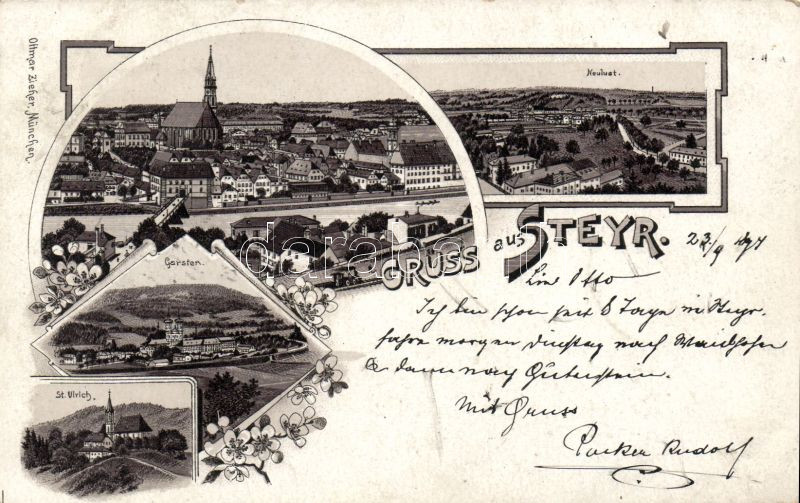 Ottmar Zieher, München.
Neulust.
GRUSS aus STEYR.
Garsten.
St. Ulrich.
darabanth
23/9 97
Otto
Ich bin schon seit 8 Tagen in Steyr.
fahre morgen Dienstag nach Waidhofen
& dann nach Gutenstein.
Mit Gruss
Rudolf